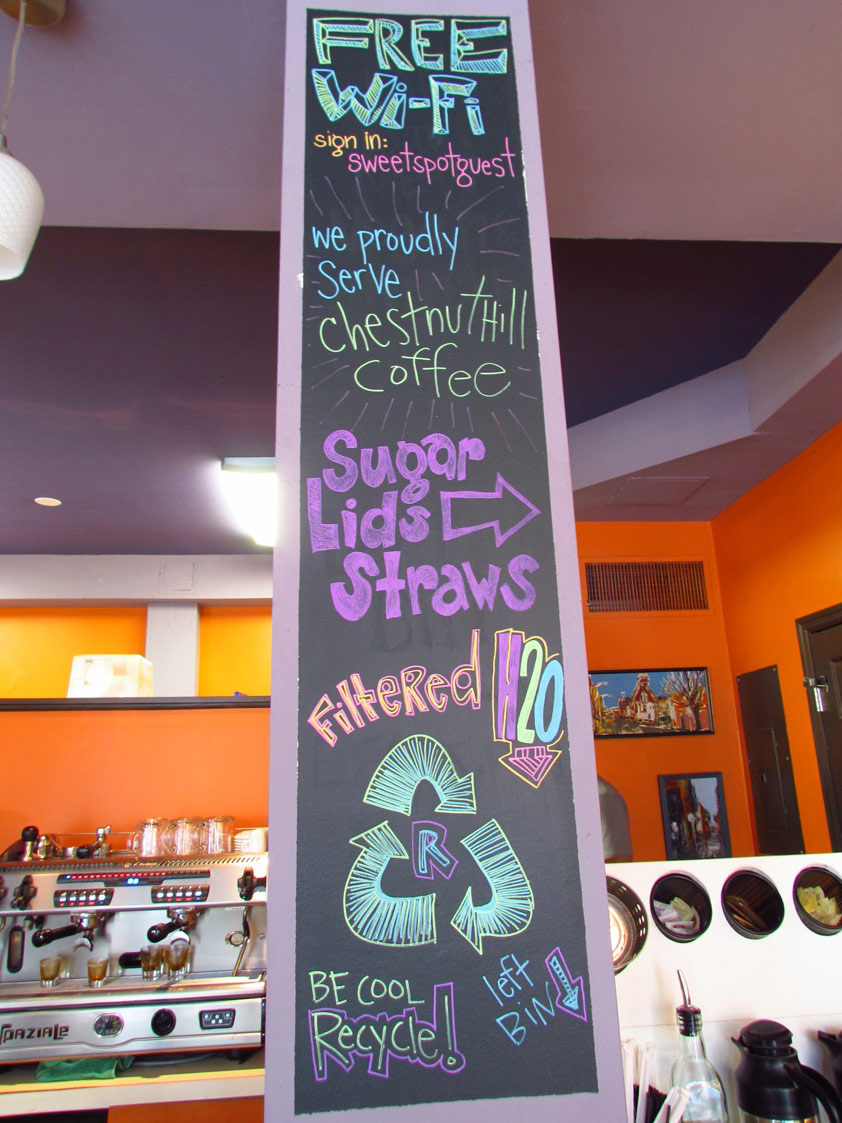 FREE
Wi-Fi
sign in:
sweetspotguest
we proudly
serve
chestnut Hill
coffee
Sugar
Lids
Straws
Filtered H2O
R
BE COOL
Recycle!
left
BIN
SPAZIALE